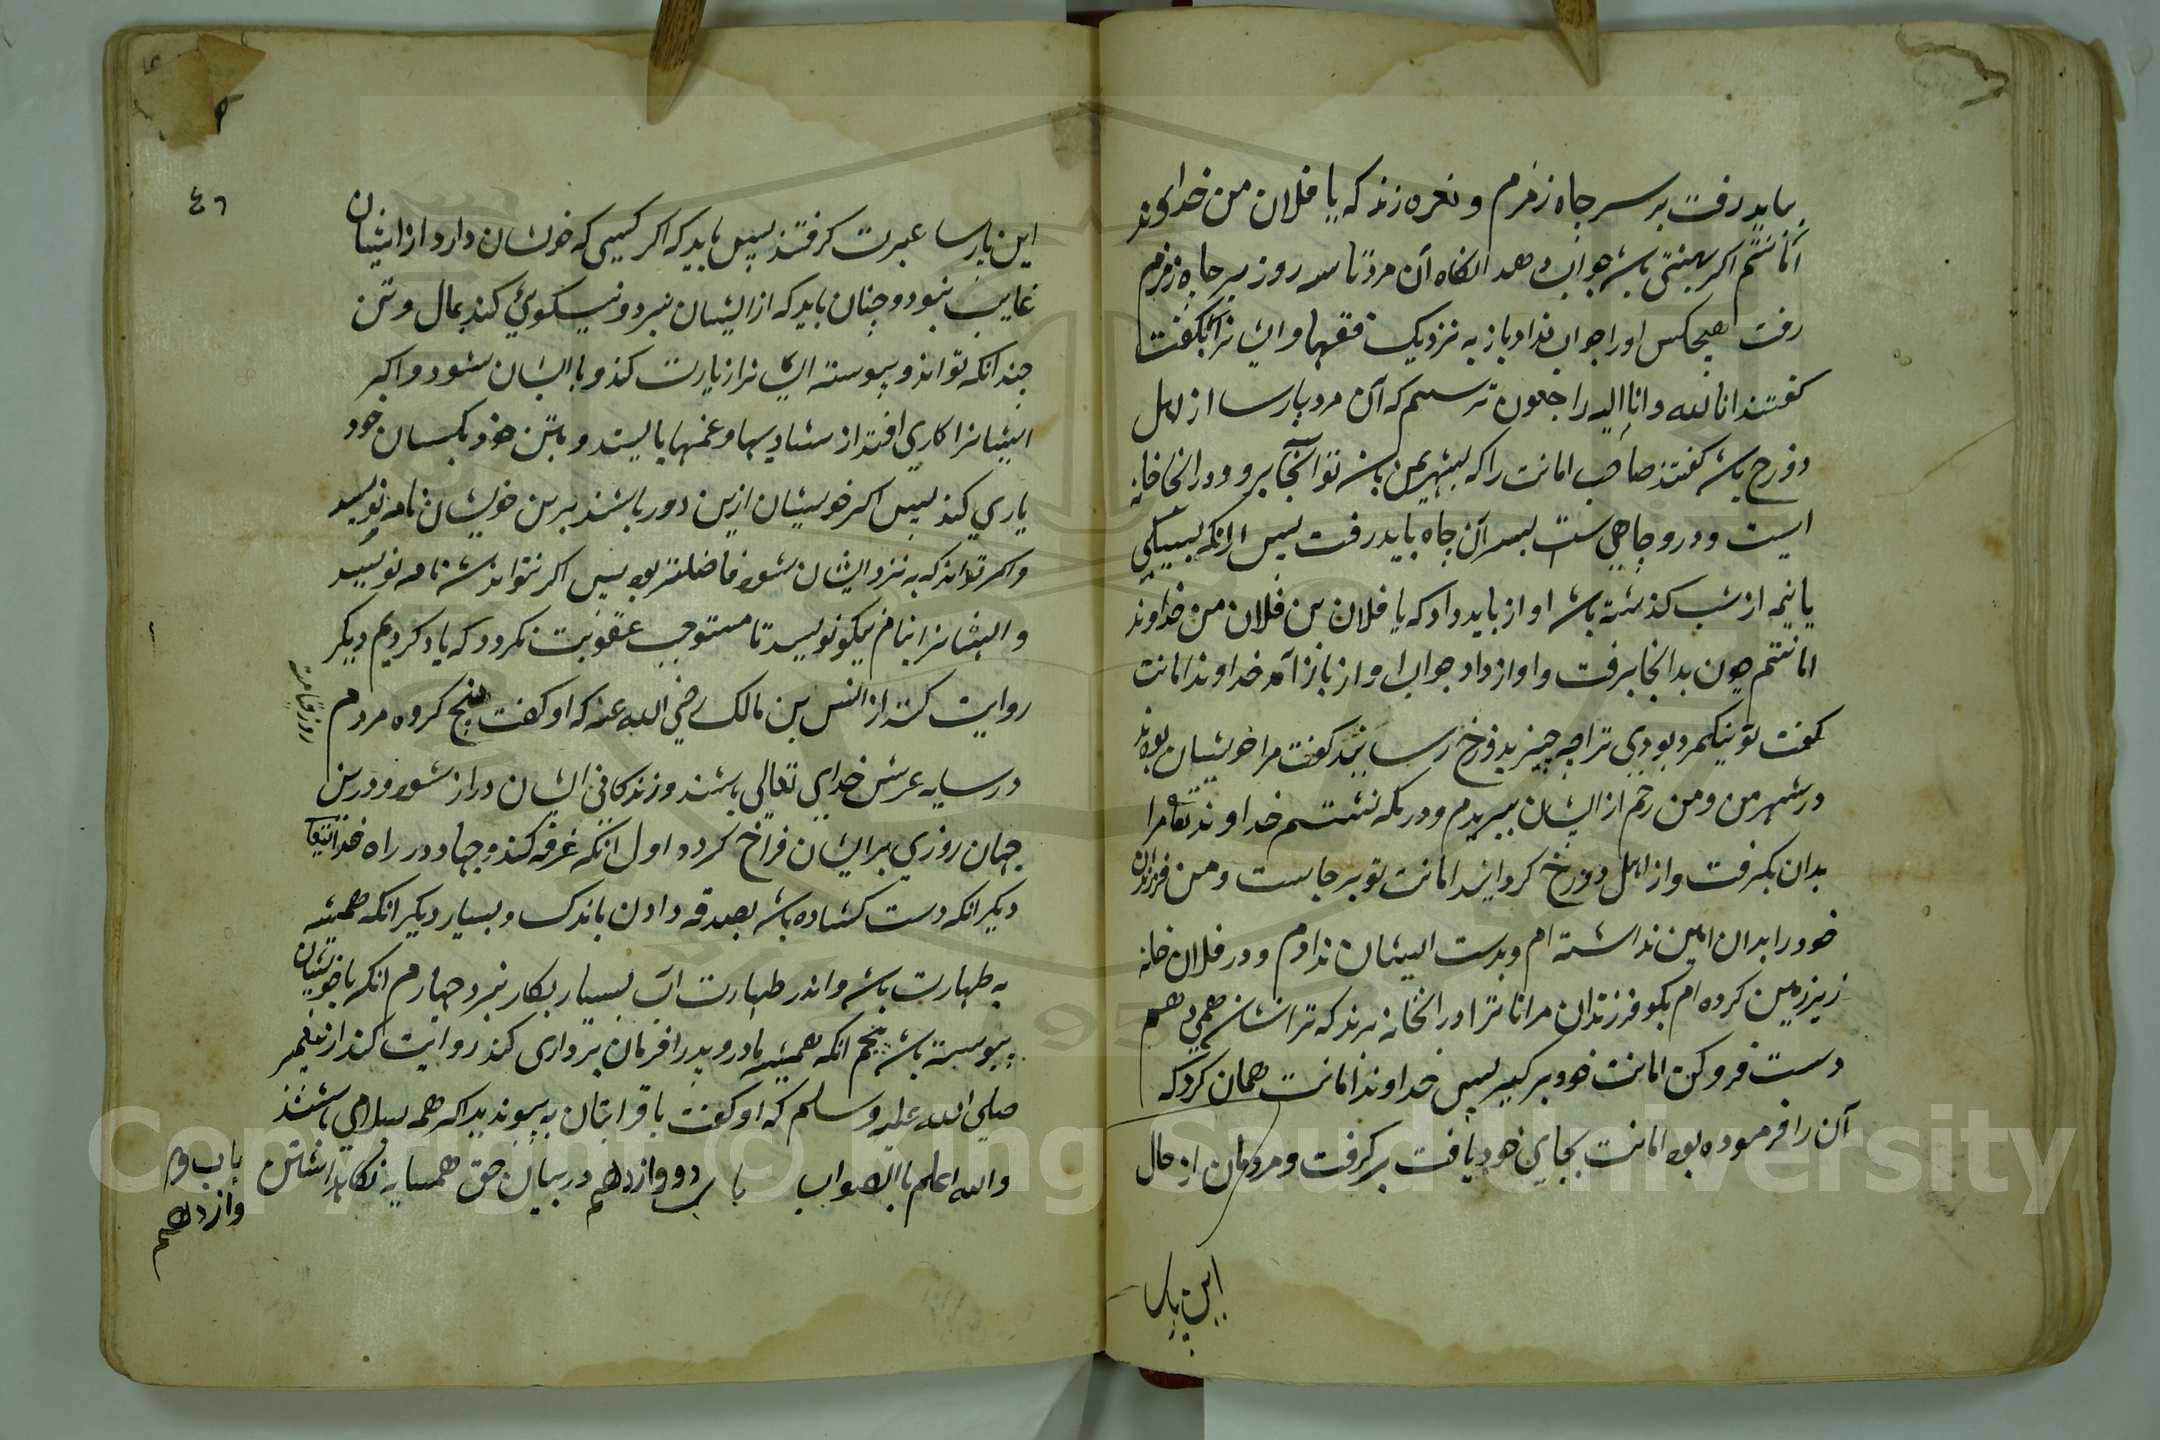 بباید رفت بر سر چاه زمزم و نعره زند که یا فلان من خداوند
امانتم اکر بهشتی باشد جواب دهد انکاه آن مرد تا سه روز بر چاه زمزم
رفت هیچکس او را جواب نداد باز به نزدیک فقها و ایشانرا بکفت
کفتند انا لله و انا الیه راجعون ترسیم که آن مرد پارسا از اهل
دوزخ باشد کفتند صاحب امانت را که بشهر یمن باید تو آنجا برو و در انجا خانه
ایست و درو چاهی ست بسر آن چاه باید رفت پس ازانکه سیکی
یا نیمه از شب کذشته باشد اواز باید داد که یا فلان بن فلان من خداوند
امانتم چون بدانجا برفت و اواز داد جواب اواز باز آمد خداوند امانت
کفت تو نیکمرد بودی ترا چه چیز بدوزخ رسانید کفت مرا خویشان بودند
در شهر من و من رحم از ایشان ببریدم و در مکه نشستم خداوند تعا مرا
بدان بکرفت و از اهل دوزخ کردانید امانت تو بر جاست و من فرزندان
خود را بدان امین نداشته ام و بدست ایشان ندادم و در فلان خانه
زیر زمین کرده ام بکو فرزندان مرا تا ترا در انخانه برند که ترا نشان همی دهم
دست فرو کن امانت خود بر کیر پس خداوند امانت همان کرد که
آن را فرموده بود امانت بجای خود یافت بر کرفت و مردمان از حال
این پارسا
٤٦
این پارسا عبرت کرفتند پس باید که اکر کسی که خویشان دارد از ایشان
غایب نبود و چنان باید که از ایشان نبرد و نیکویی کند بمال و تن
چندانکه تواند و پیوسته ایشانرا زیارت کند و با ایشان شود و اکر
ایشانرا کاری افتد از شادیها و غمها با یستد و بتن خود بکسان خود
یاری کند پس اکر خویشان ازین دور باشند برین خویشان نامه نویسد
و اکر تواند که به نزد ایشان شود فاضلتر بود پس اکر نتواند شد نامه نویسد
و ایشانرا بنام نیکو نویسد تا مستوجب عقوبت نکردد که یاد کردیم دیکر
روایت کنند از انس بن مالک رضی الله عنه که او کفت پنج کروه مردم
روز قیامت
در سایه عرش خدای تعالی باشند و زندکانی ایشان دراز شود و درین
جهان روزی بر ایشان فراخ کردد اول انکه غرفه کند و جهاد در راه خدایتعا
دیکر انکه دست کشاده باشد بصدقه دادن باندک و بسیار دیکر انکه همیشه
به طهارت باشد و اندر طهارت آب بسیار بکار نبرد چهارم انکه با خویشان
پیوسته باشد پنجم انکه همیشه مادر و پدر را فرمان برداری کند روایت کند از پیغمبر
صلی الله علیه و سلم که او کفت با قرابتان به پیوندید اکر همه بسلامی باشند
والله اعلم بالصواب باب دووازدهم در بیان حق همسایه نکاهداشتن
باب دو
وازدهم
Copyright © King Saud University